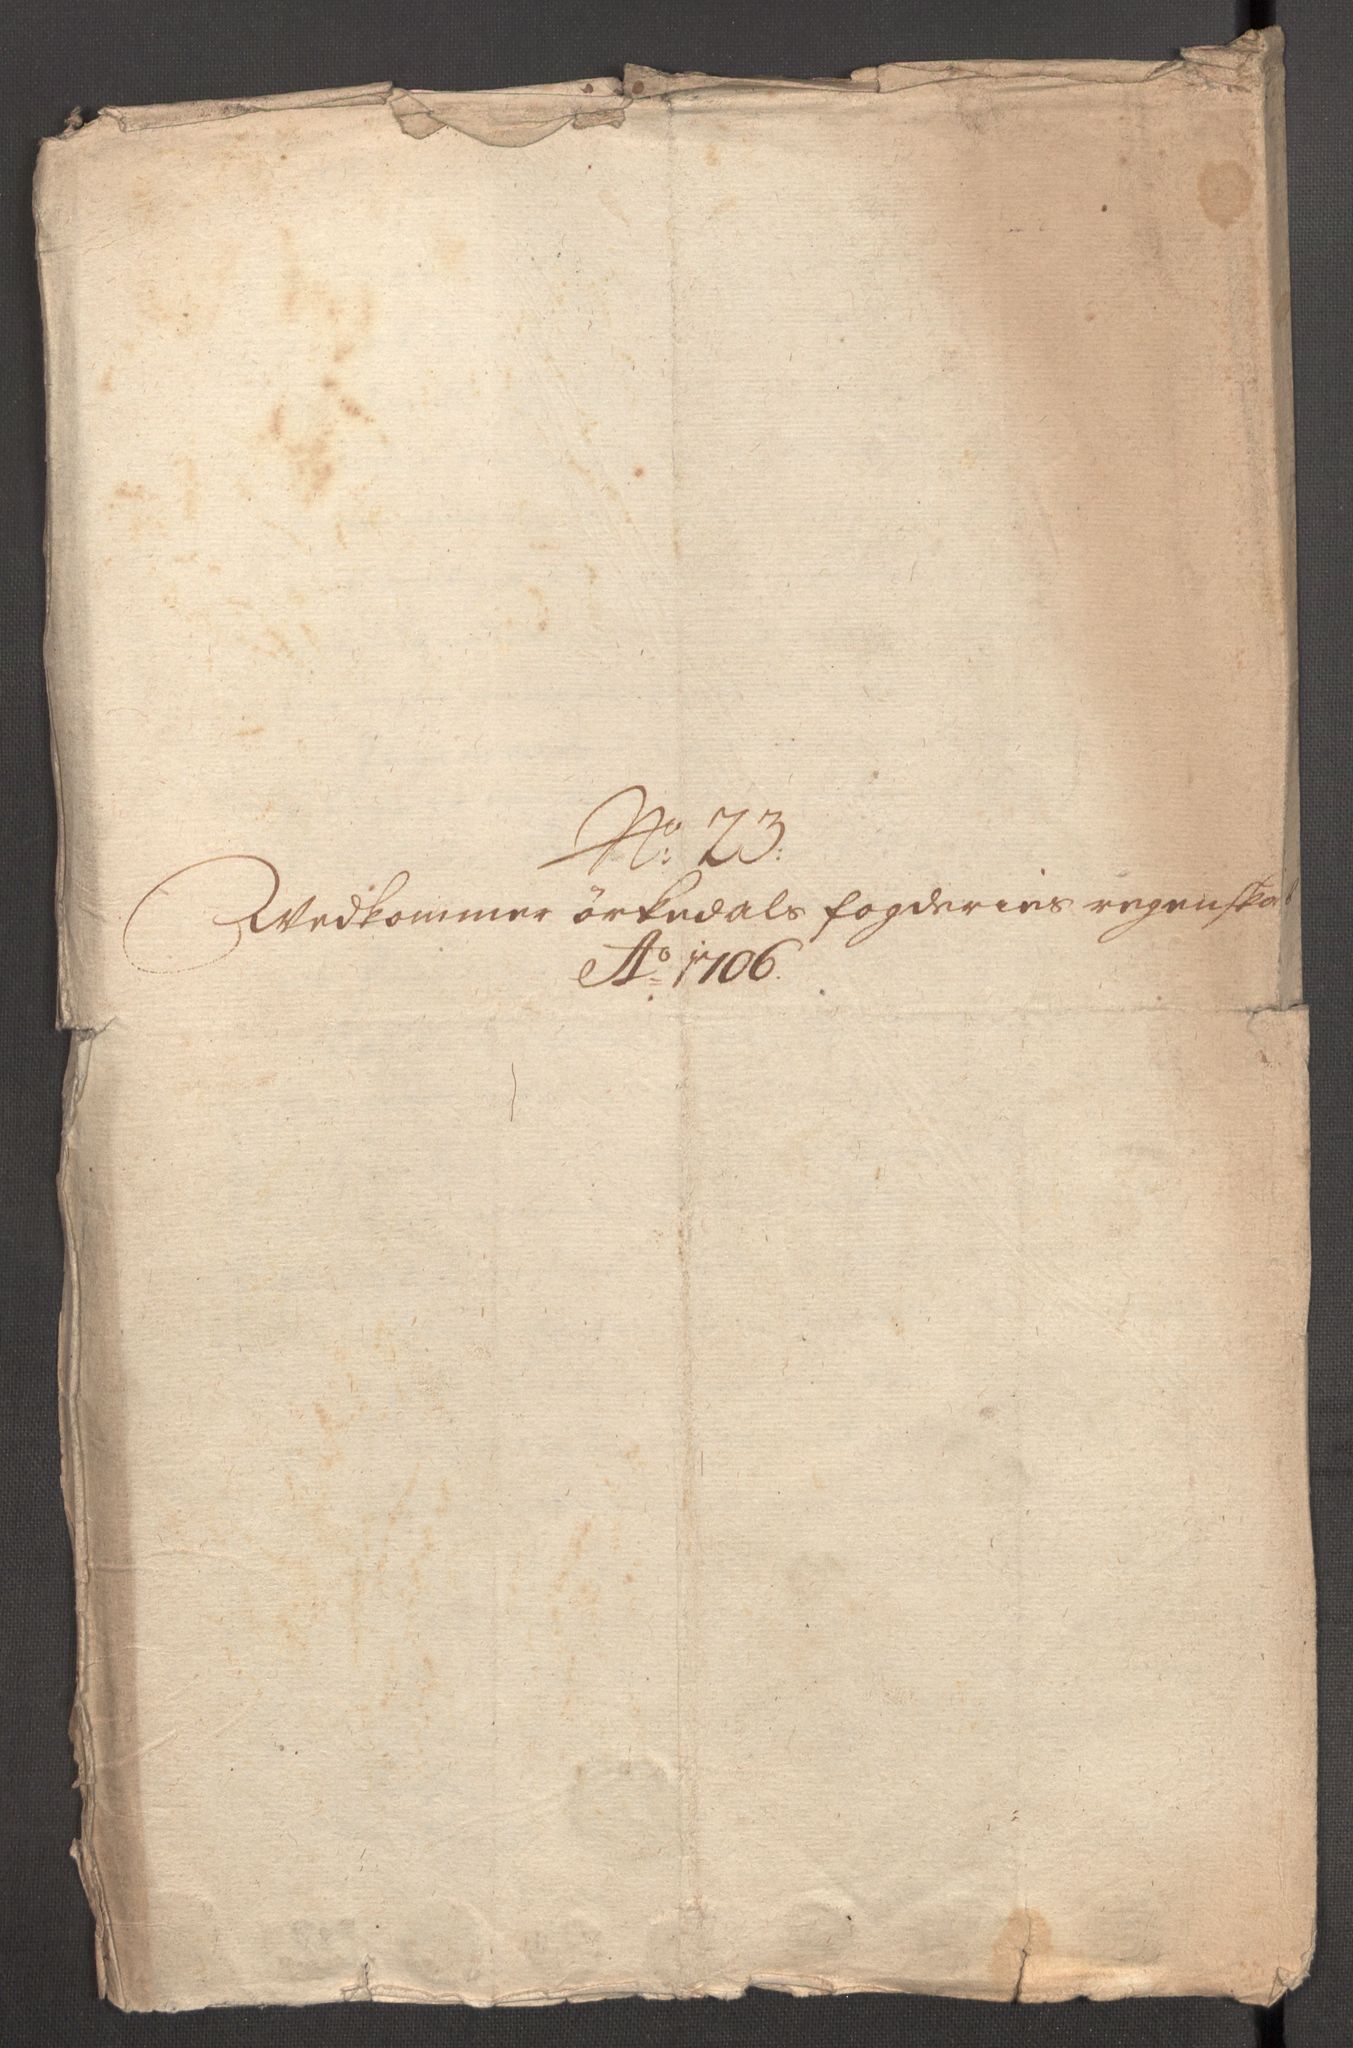 No: 23:
Vedkommer örkedals fogderies regenskab
Ao 1706.